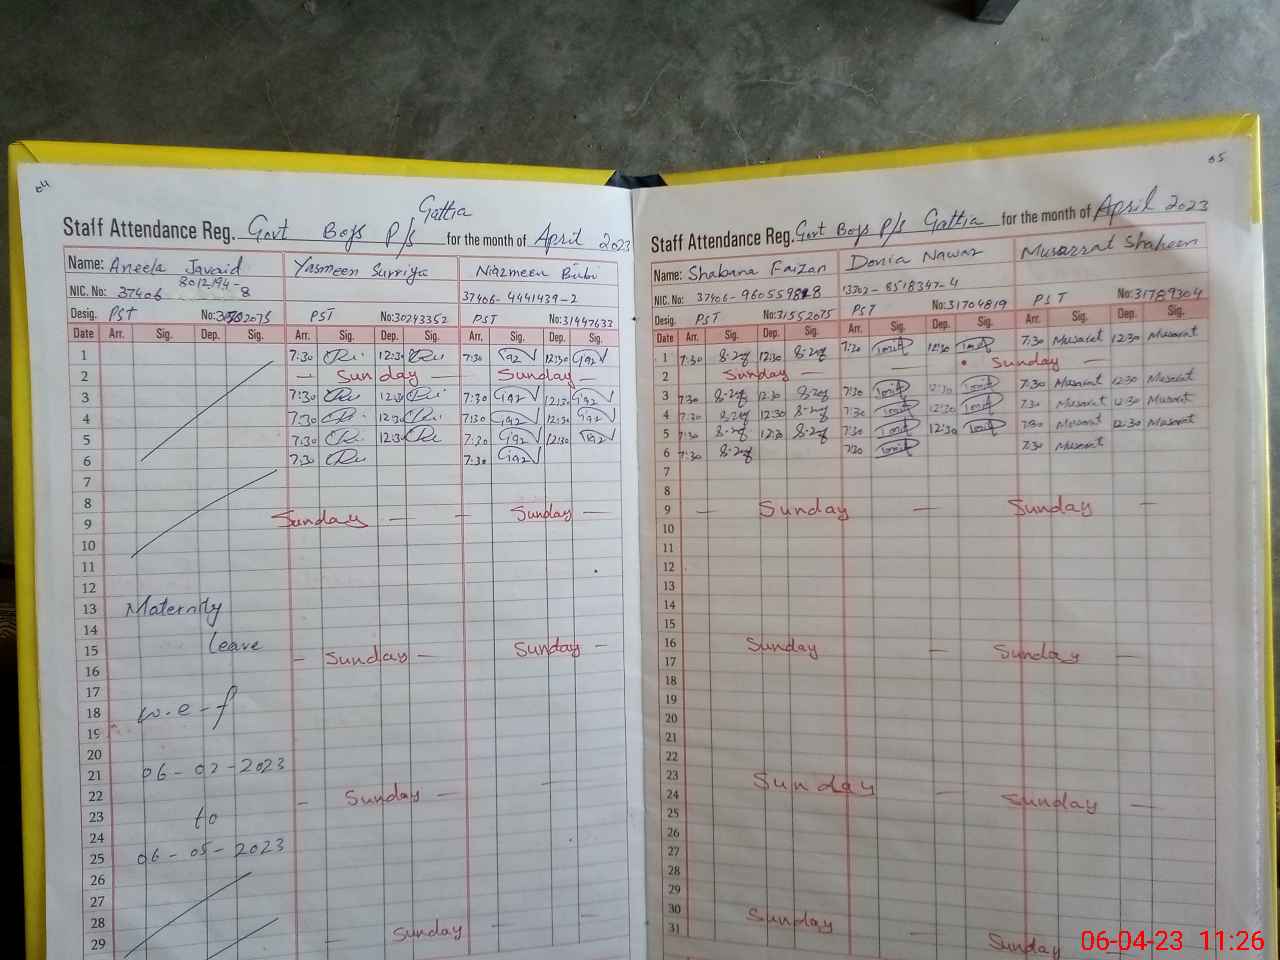 64
Gattia
Staff Attendance Reg. Govt Boys P/s for the month of April 2023
Name: Aneela Javaid Yasmeen Surriya Niazmeen Bibi
NIC. No: 37406 8012194-8 37406-4441439-2
Desig. PST PST No:30243352 PST No:31447633
Date Arr. Sig. Dep. Sig. Arr. Sig. Dep. Sig. Arr. Sig. Dep. Sig.
1 7:30 12:30 7:30 12:30
2 — Sunday — Sunday —
3 7:30 12:30 7:30 12:30
4 7:30 12:30 7:30 12:30
5 7:30 12:30 7:30 12:30
6 7:30 7:30
7
8
9 Sunday — — Sunday —
10
11
12
13 Maternity
14
15 leave — Sunday — Sunday —
16
17
18 w.e-f
19
20
21 06-02-2023
22 — Sunday —
23 to
24
25 06-05-2023
26
27
28
29 — Sunday —
65
Staff Attendance Reg. Govt Boys P/s Gattia for the month of April 2023
Name: Shabana Faizan Donia Nawaz Musarrat Shaheen
NIC. No: 37406-9605598-8 13302-8518347-4
Desig. PST No:31552075 PST No:31704819 PST No:31789304
Date Arr. Sig. Dep. Sig. Arr. Sig. Dep. Sig. Arr. Sig. Dep. Sig.
1 7:30 12:30 7:30 12:30 7:30 Musarat 12:30 Musarat
2 Sunday — — Sunday —
3 7:30 12:30 7:30 12:30 7:30 Musarat 12:30 Musarat
4 7:30 12:30 7:30 12:30 7:30 Musarat 12:30 Musarat
5 7:30 12:30 7:30 12:30 7:30 Musarat 12:30 Musarat
6 7:30 7:30 7:30 Musarat
7
8
9 — Sunday — Sunday —
10
11
12
13
14
15
16 Sunday — Sunday —
17
18
19
20
21
22
23 Sunday — Sunday —
24
25
26
27
28
29
30 Sunday — Sunday
31
06-04-23 11:26